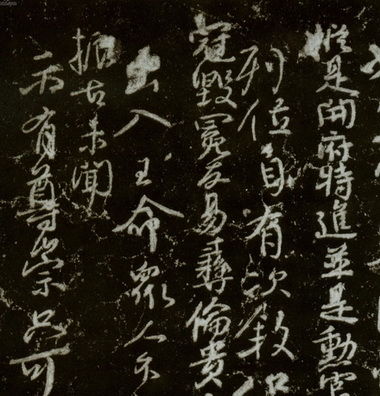 縱是開府特進並是勳官
列位自有次叙
冠毀冕反易彝倫貴
出入王命眾人不
振古未聞
示有尊崇只可